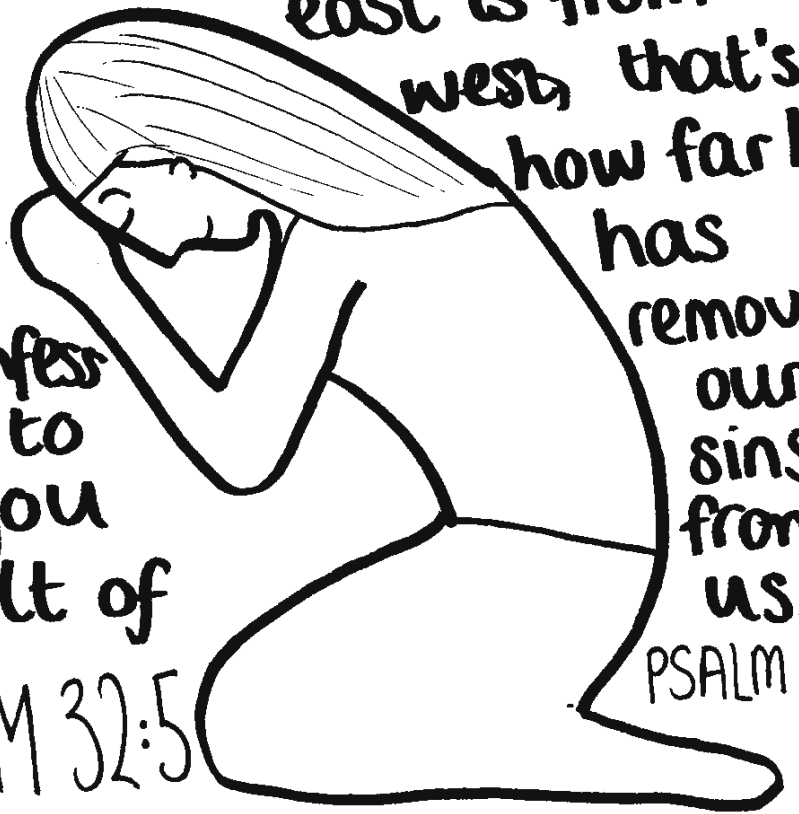 east is from
west, that's
how far
has
remov
our
sins
from
us
PSALM
nfess
to
you
lt of
M 32:5